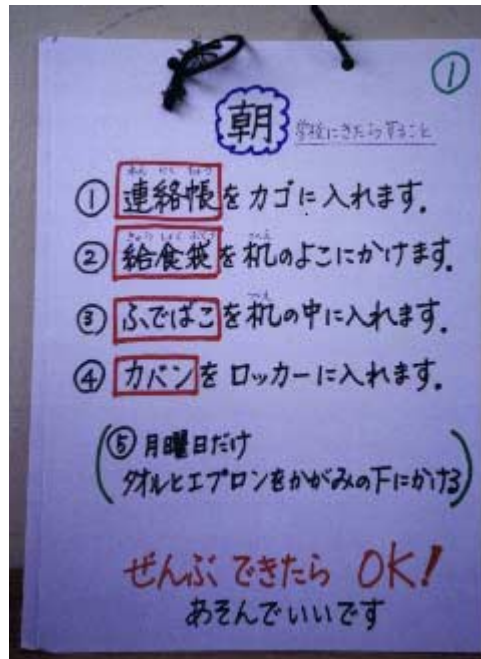 ①
朝 学校にきたらすること
① 連絡帳をカゴに入れます。
② 給食袋を机のよこにかけます。
③ ふでばこを机の中に入れます。
④ カバンをロッカーに入れます。
(⑤ 月曜日だけ
タオルとエプロンをかがみの下にかける)
ぜんぶできたら OK!
あそんでいいです